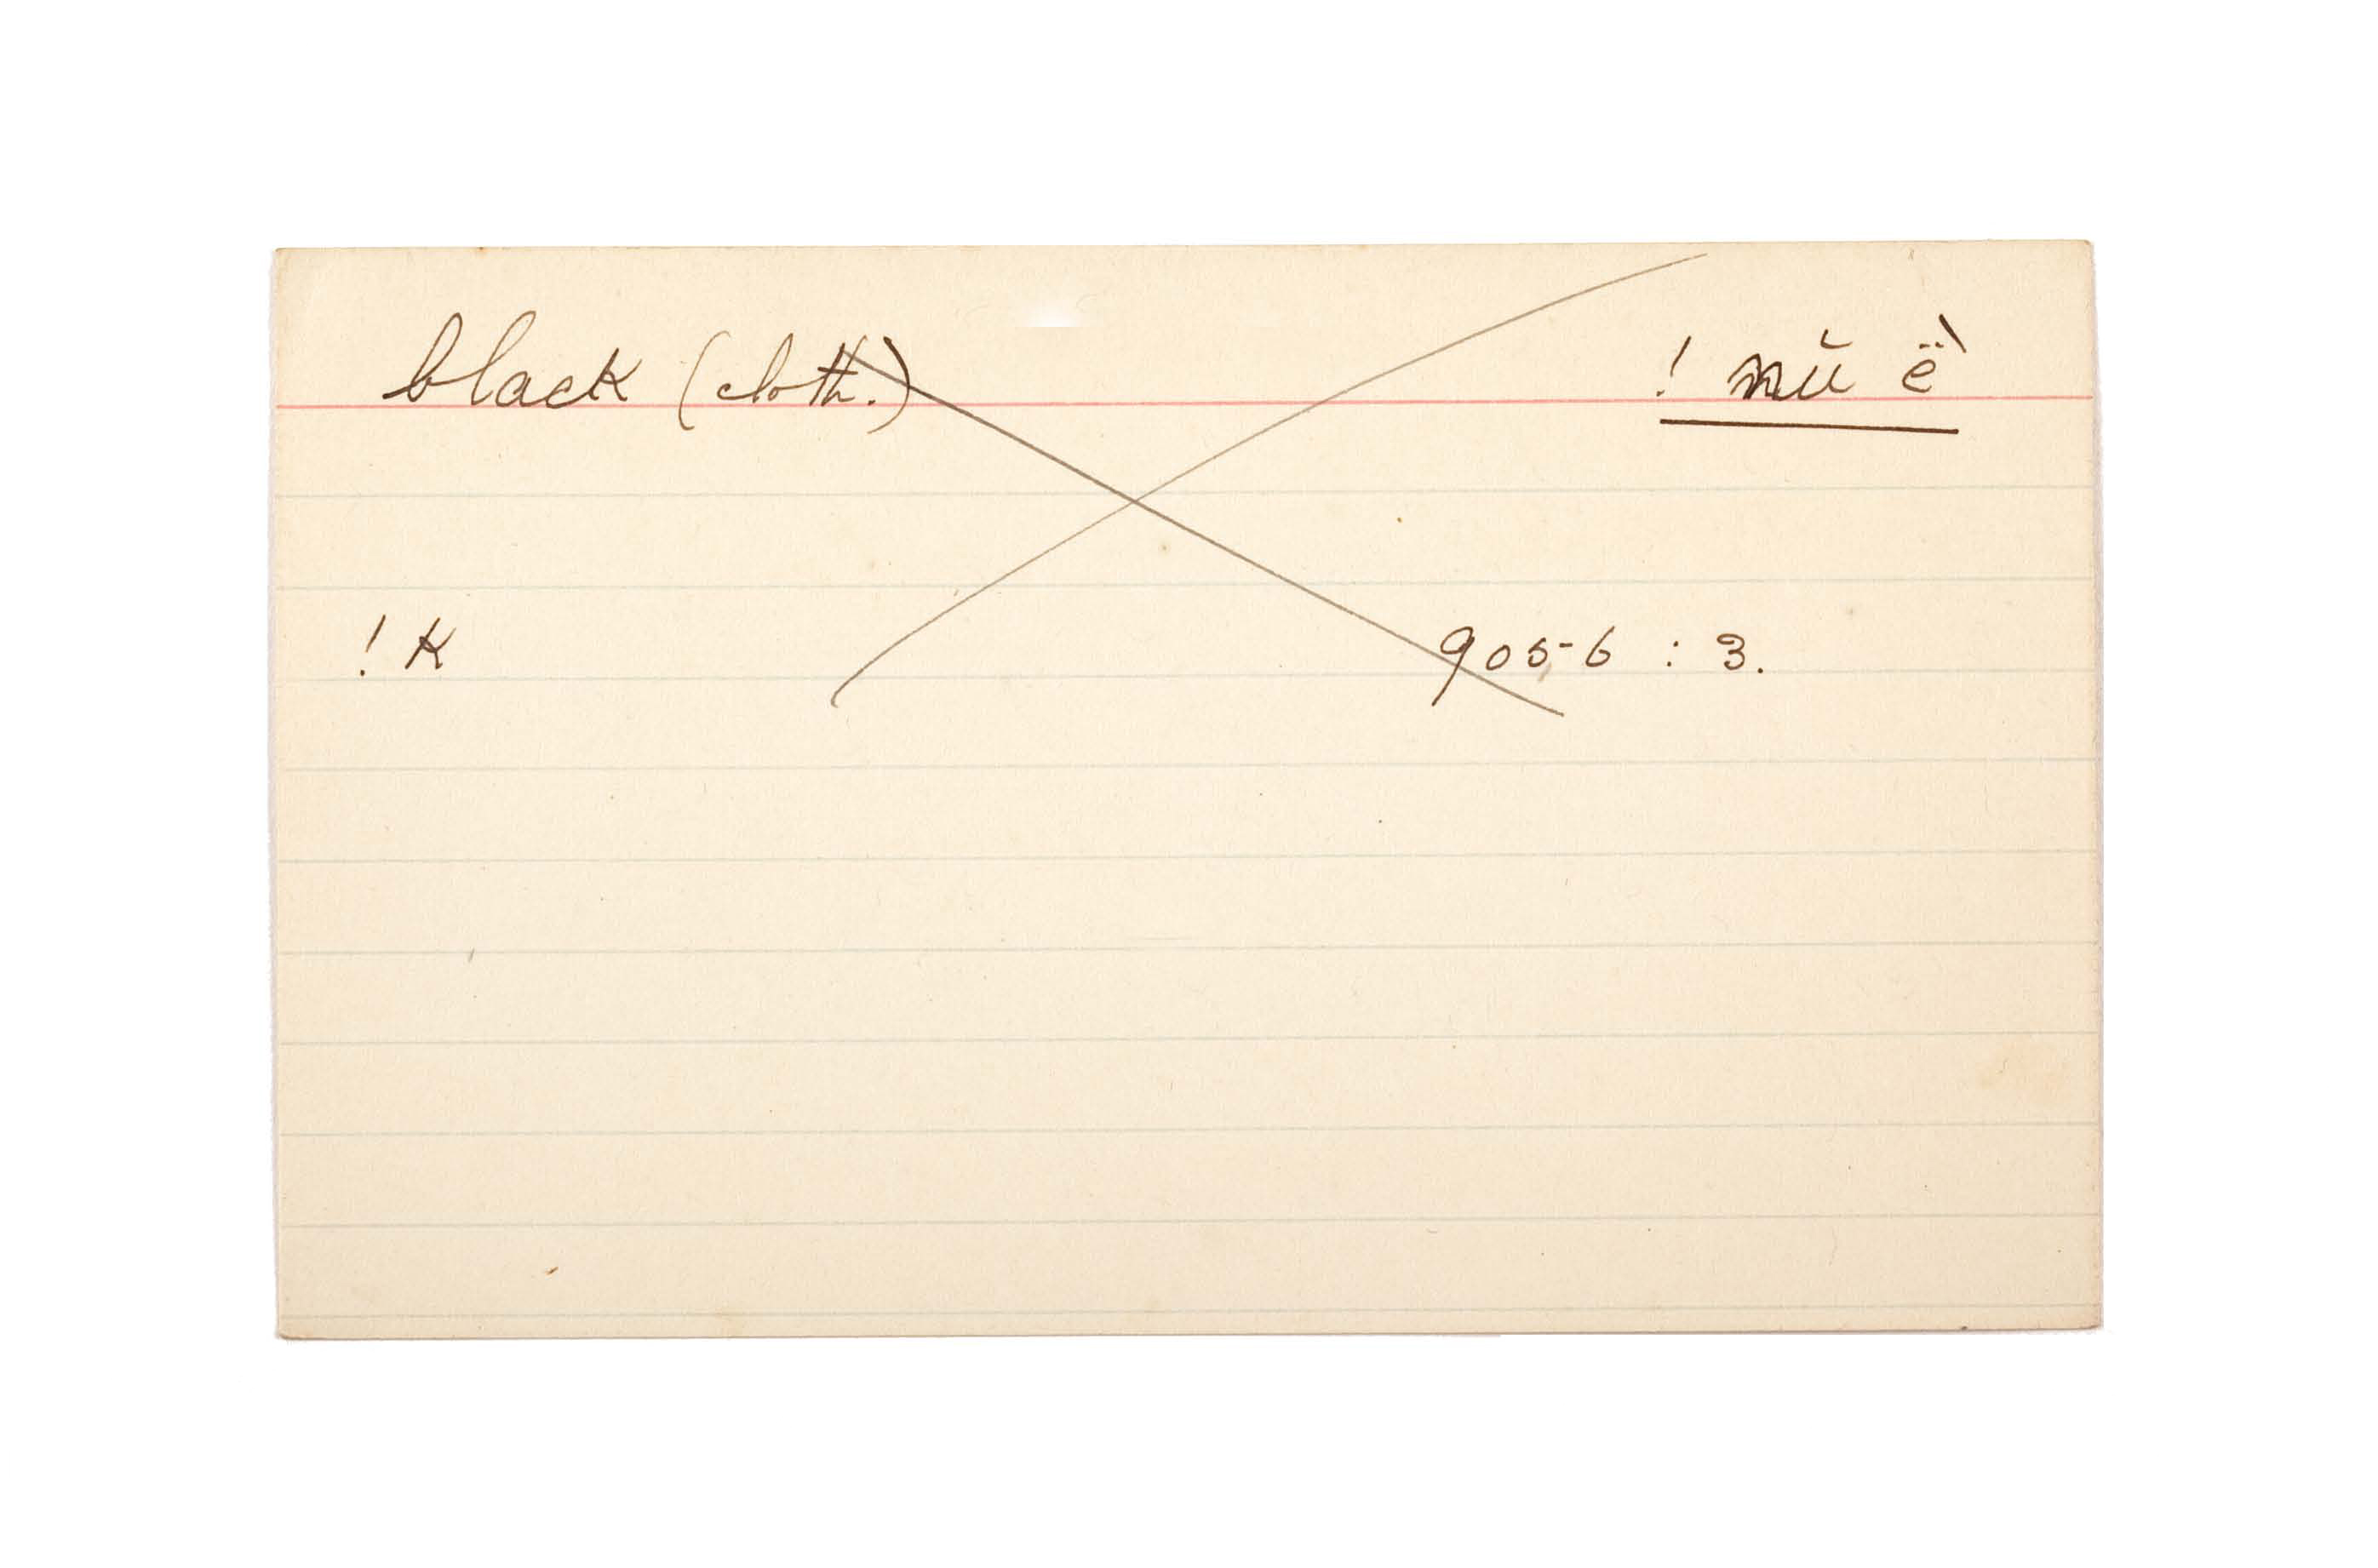 black (cloth.) ! nŭ ë̀
! K 9056 : 3.